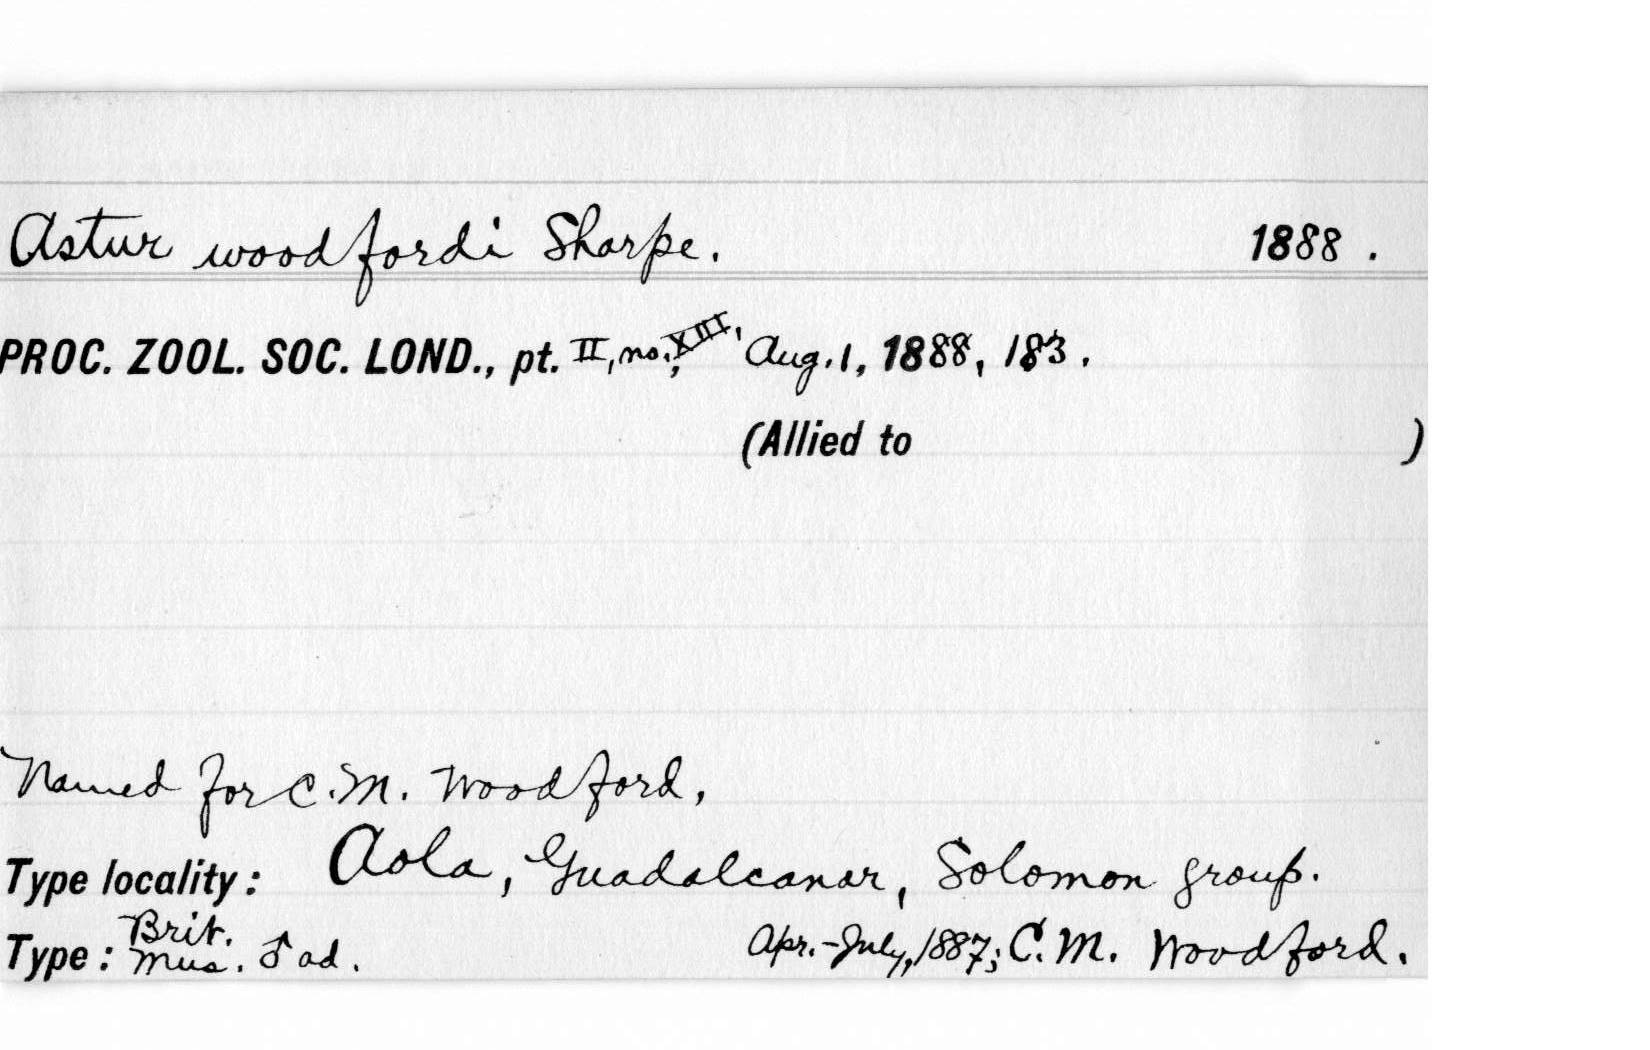 Astur woodfordi Sharpe. 1888.
PROC. ZOOL. SOC. LOND., pt. II, no. XIII, Aug. 1, 1888, 183.
(Allied to )
Named for C. M. Woodford,
Type locality: Aola, Guadalcanar, Solomon group.
Type: Brit. Mus. ♂ ad. Apr.-July, 1887; C. M. Woodford.